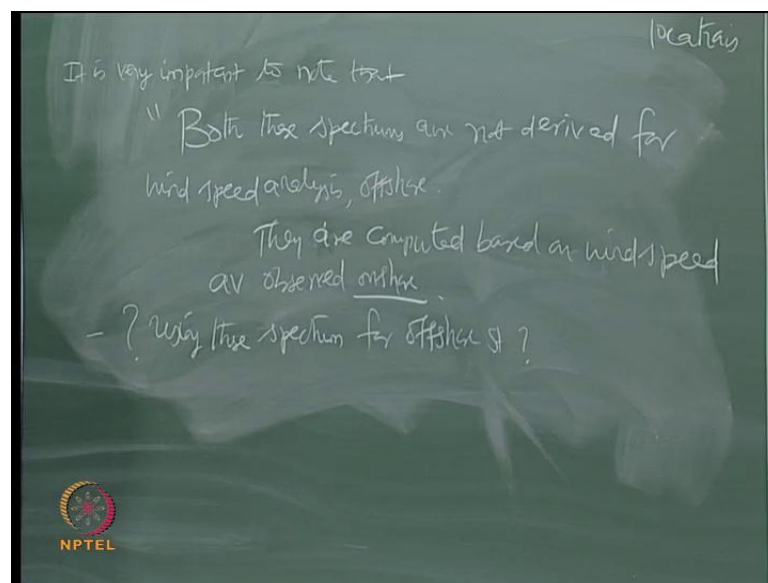 locations
It is very important to note that
" Both these spectrums are not derived for
wind speed analysis, offshore.
They are computed based on wind speed
as observed onshore.
- ? using these spectrum for offshore st ?
NPTEL